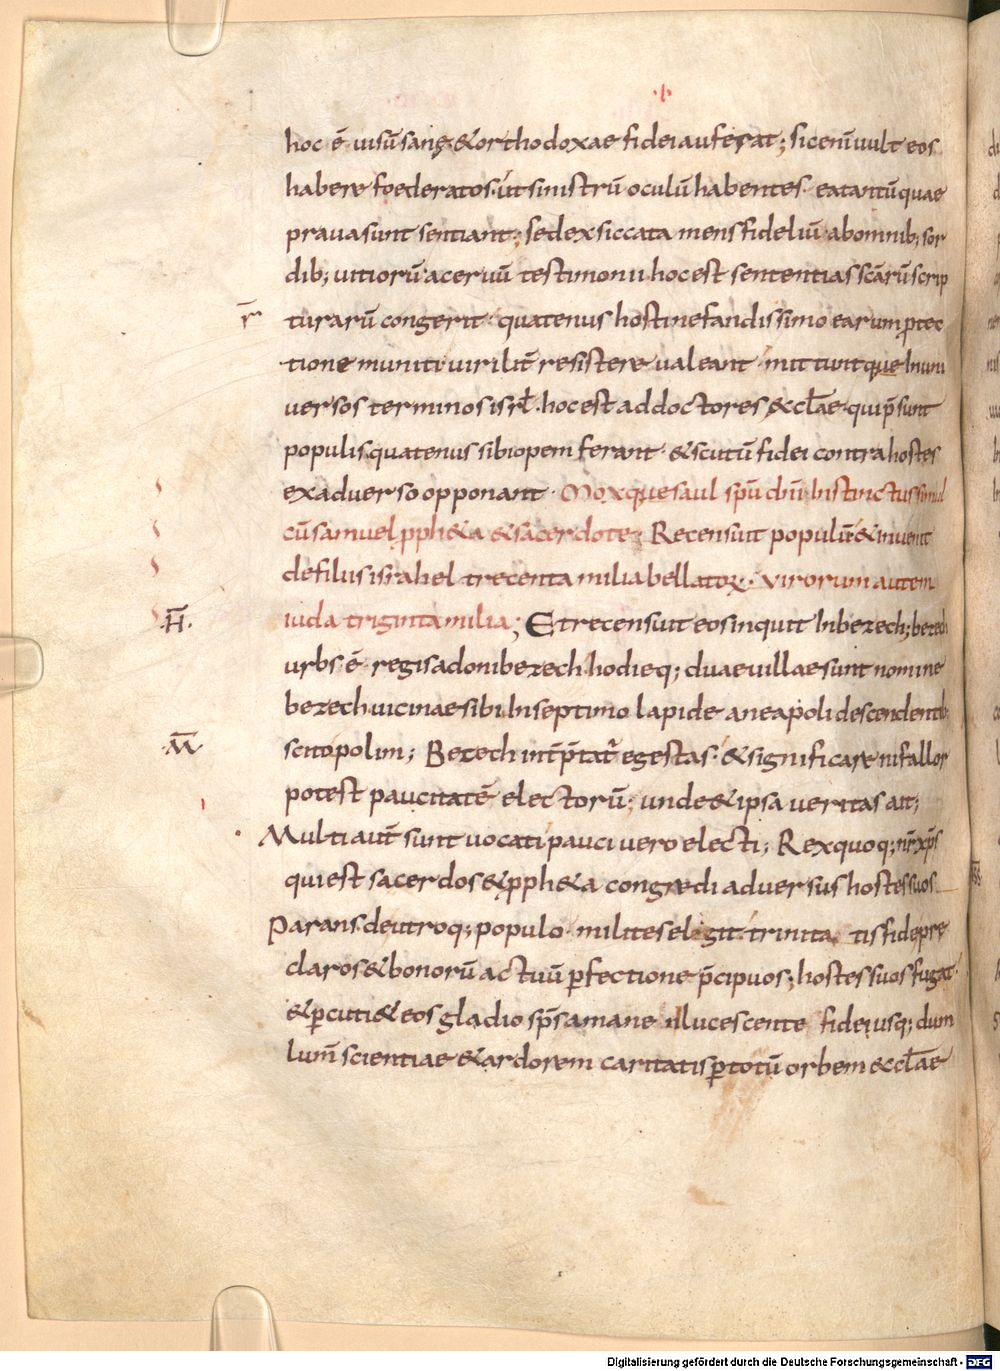 ·ł·
hoc ē uisū sanę & orthodoxae fidei auferat; sic enī uult eos
habere foederatos ut sinistrū oculū habentes eatantū quae
praua sunt sentiant; sed exsiccata mens fideliū abomnib; sor
dib; uitiorū aceruū testimonii hoc est sententias scārū scrip
r̄ turarū congerit quatenus hosti nefandissimo earum ptec
tione muniti uirilit̄ resistere ualeant mittuntque In uni
uersos terminos isrł hoc est ad doctores æccłae qui p̄sunt
populis quatenus sibi opem ferant & scutū fidei contra hostes
exaduerso opponant Moxque saul spū dnī Instinctus simul
cū samuel pph&a & sacerdote; Recensuit populū & inuenit
de filiis israhel trecenta milia bellatoꝝ uirorum autem
·H̄· iuda triginta milia; Et recensuit eos inquit In bezech; bezech
urbs ē regis adonibezech hodieq; duae uillae sunt nomine
bezech uicinae sibi In septimo lapide a neapoli descendentib;
·M̄· scitopolim; Bezech int̄p̄tat̄ egestas & significare ni fallor
potest paucitatē electorū; unde & ipsa ueritas ait;
Multi aut̄ sunt uocati pauci uero electi; Rex quoq; nr̄ xp̄s
qui est sacerdos & pph&a congredi aduersus hostes suos
Parans de utroq; populo milites elegit trinita tis fide pre
claros & bonorū actuū perfectione p̄cipuos; hostes suos fugat
& percuti& eos gladio sps̄ a mane illucescente fidei usq; dum
lum̄ scientiae & ardorem caritatis per totū orbem æccłae
Digitalisierung gefördert durch die Deutsche Forschungsgemeinschaft - DFG